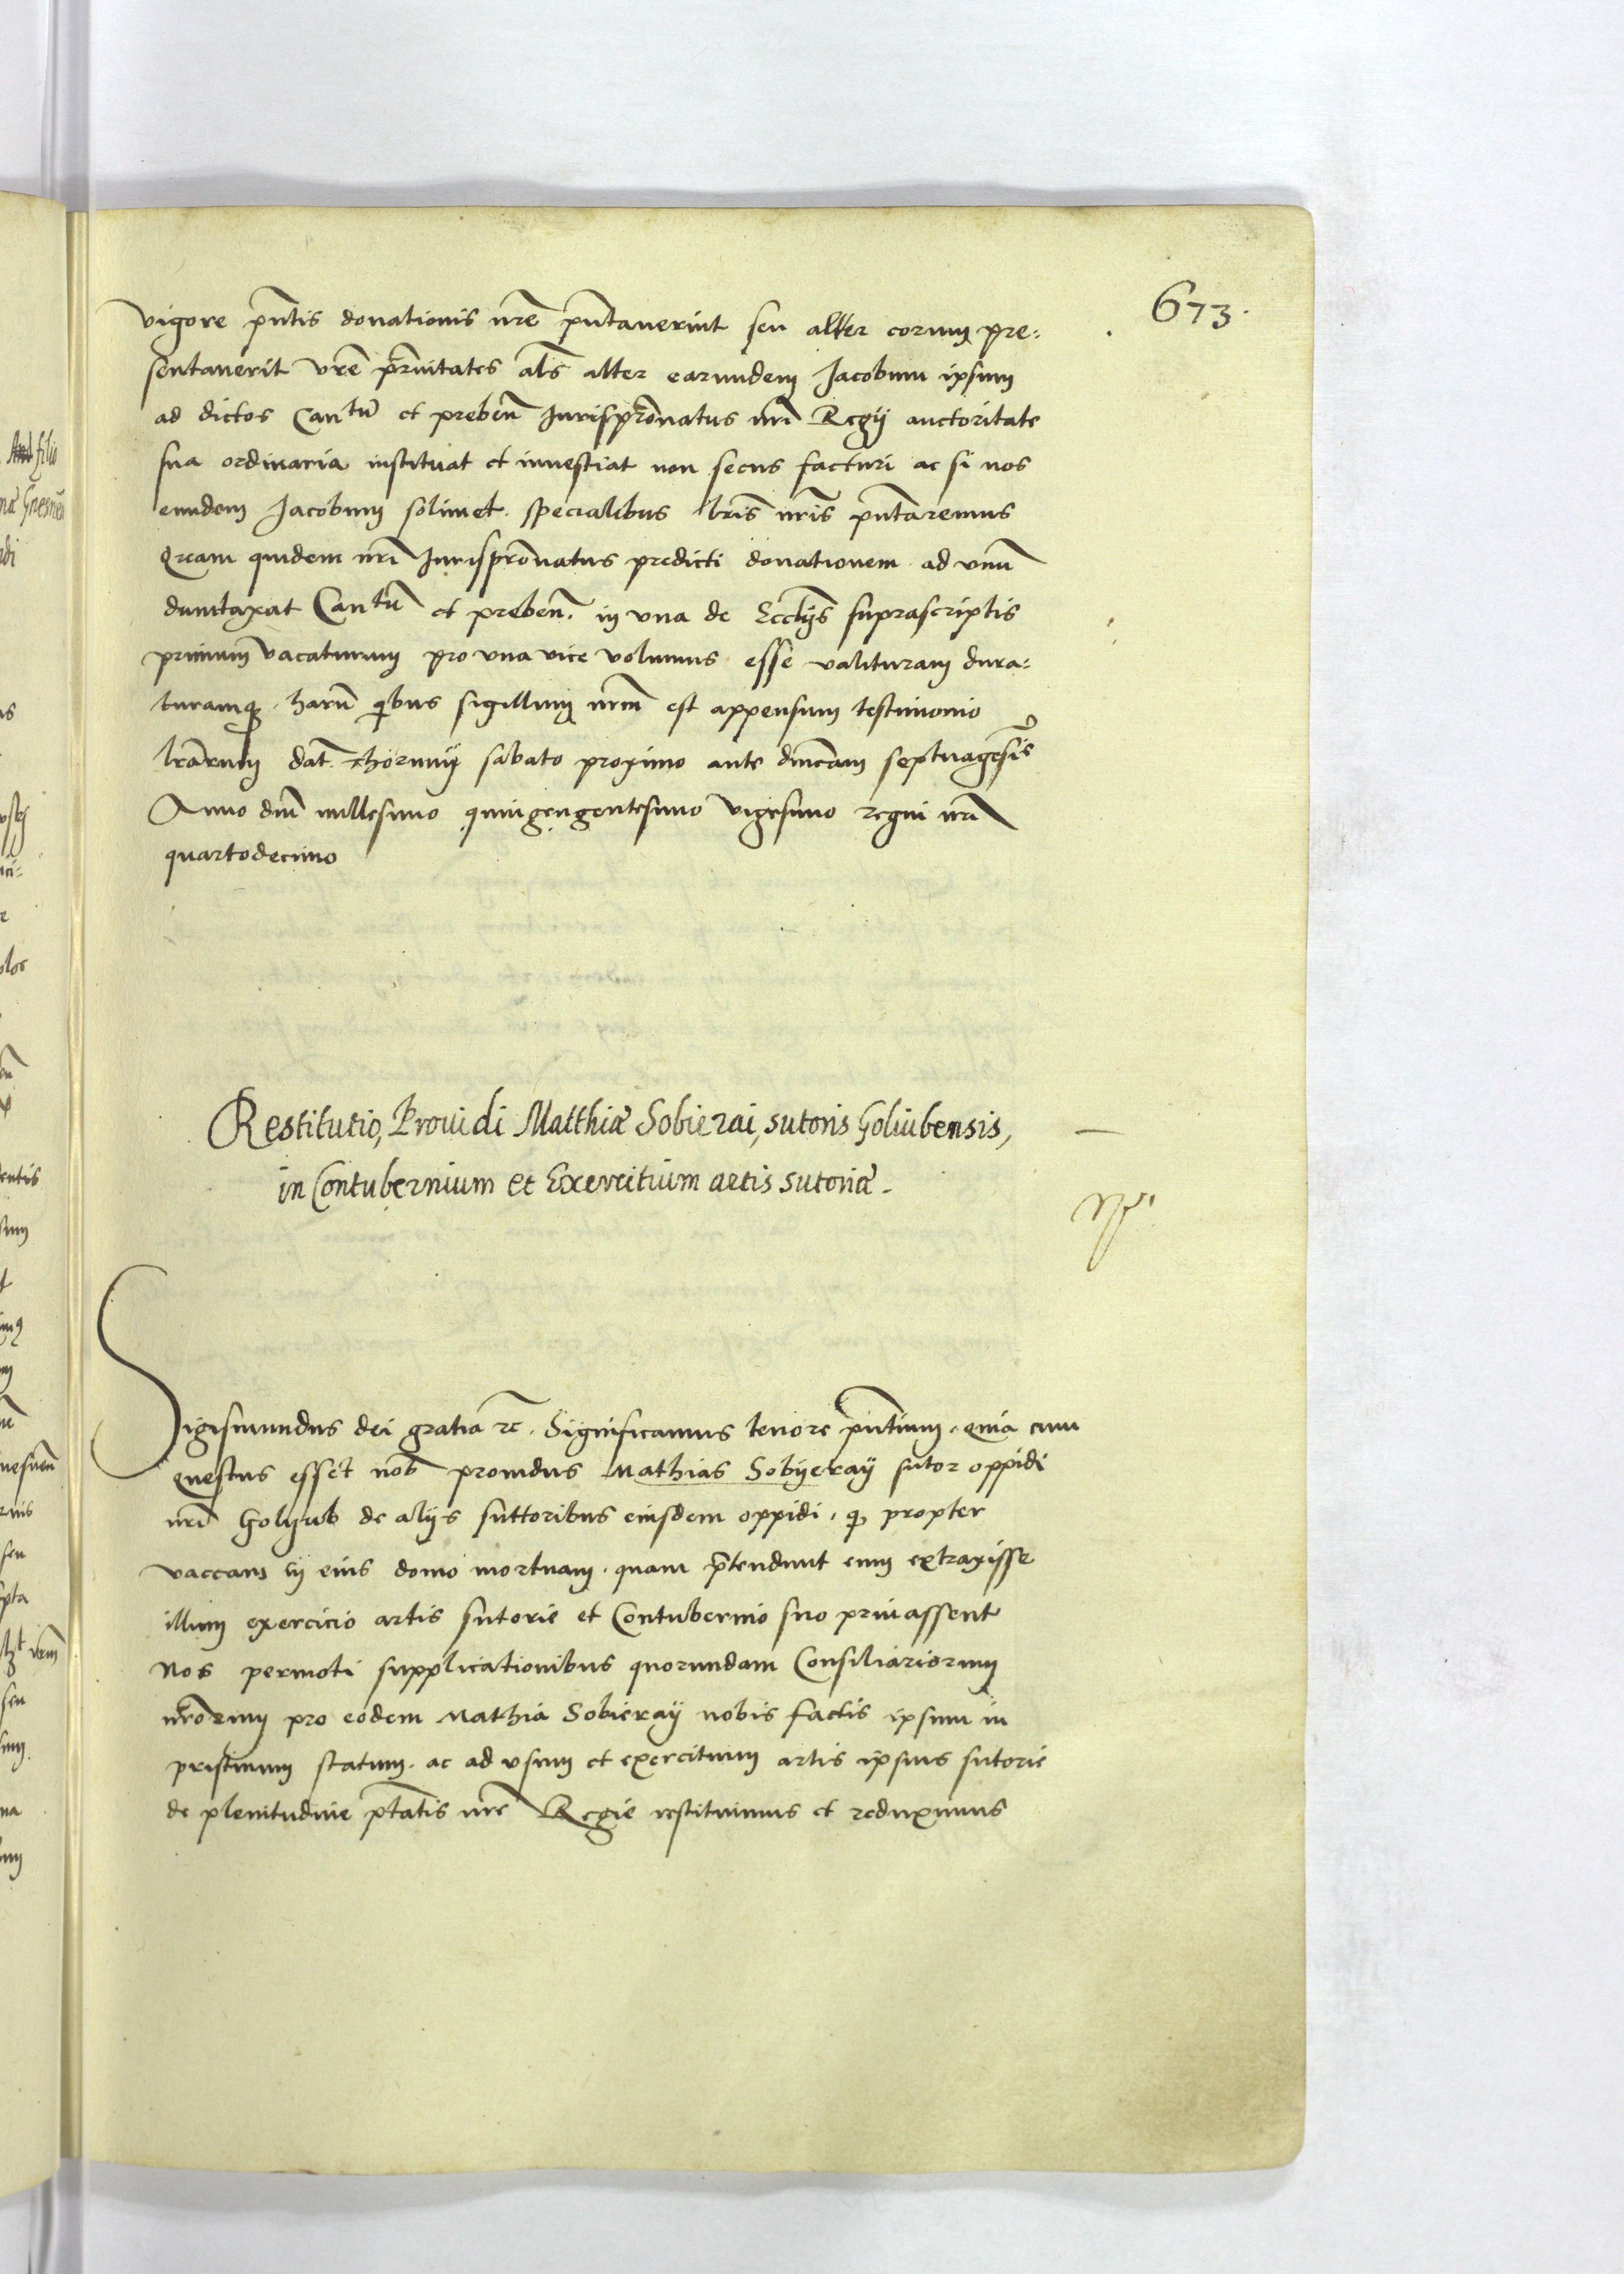 673.
vigore pntis donationis nre pntauerint seu alter eorum pre-
sentauerit vre prnitates als alter earundem Jacobum ipsum
ad dictos Cantum et preben Jurispronatus nri Regij auctoritate
sua ordinaria instituat et inuestiat non secus facturi ac si nos
eundem Jacobum solumet specialibus lris nris pntaremus
Quam quidem nri Jurispronatus predicti donationem ad vnum
duntaxat Cantum et preben. in vna de Ecclijs suprascriptis
primum vacaturum pro vna vice volumus esse valituram dura-
turamque. harum quibus sigillum nrm est appensum testimonio
lrarum dat. Thorunij sabato proximo ante dmcam septuagesis
Anno dni millesimo quingengentesimo vigesimo regni nri
quartodecimo
Restitutio, Prouidi Matthiæ Sobierai, sutoris Goliubensis,
in Contubernium et Exercitium artis sutoriæ.
Sigismundus dei gratia etc. Significamus tenore pntium. quia cum
questus esset nob prouidus Mathias Sobyeray sutor oppidi
nri Golyub de alijs suttoribus eiusdem oppidi. qui propter
vaccam in eius domo mortuam. quam ptendunt eum extraxisse
illum exercicio artis sutorie et Contubernio suo priuassent
Nos permoti supplicationibus quorundam Consiliariorum
nrorum pro eodem Mathia Sobieray nobis factis ipsum in
pristinum statum. ac ad vsum et exercitium artis ipsius sutorie
de plenitudine ptatis nre Regie restituimus et reduximus